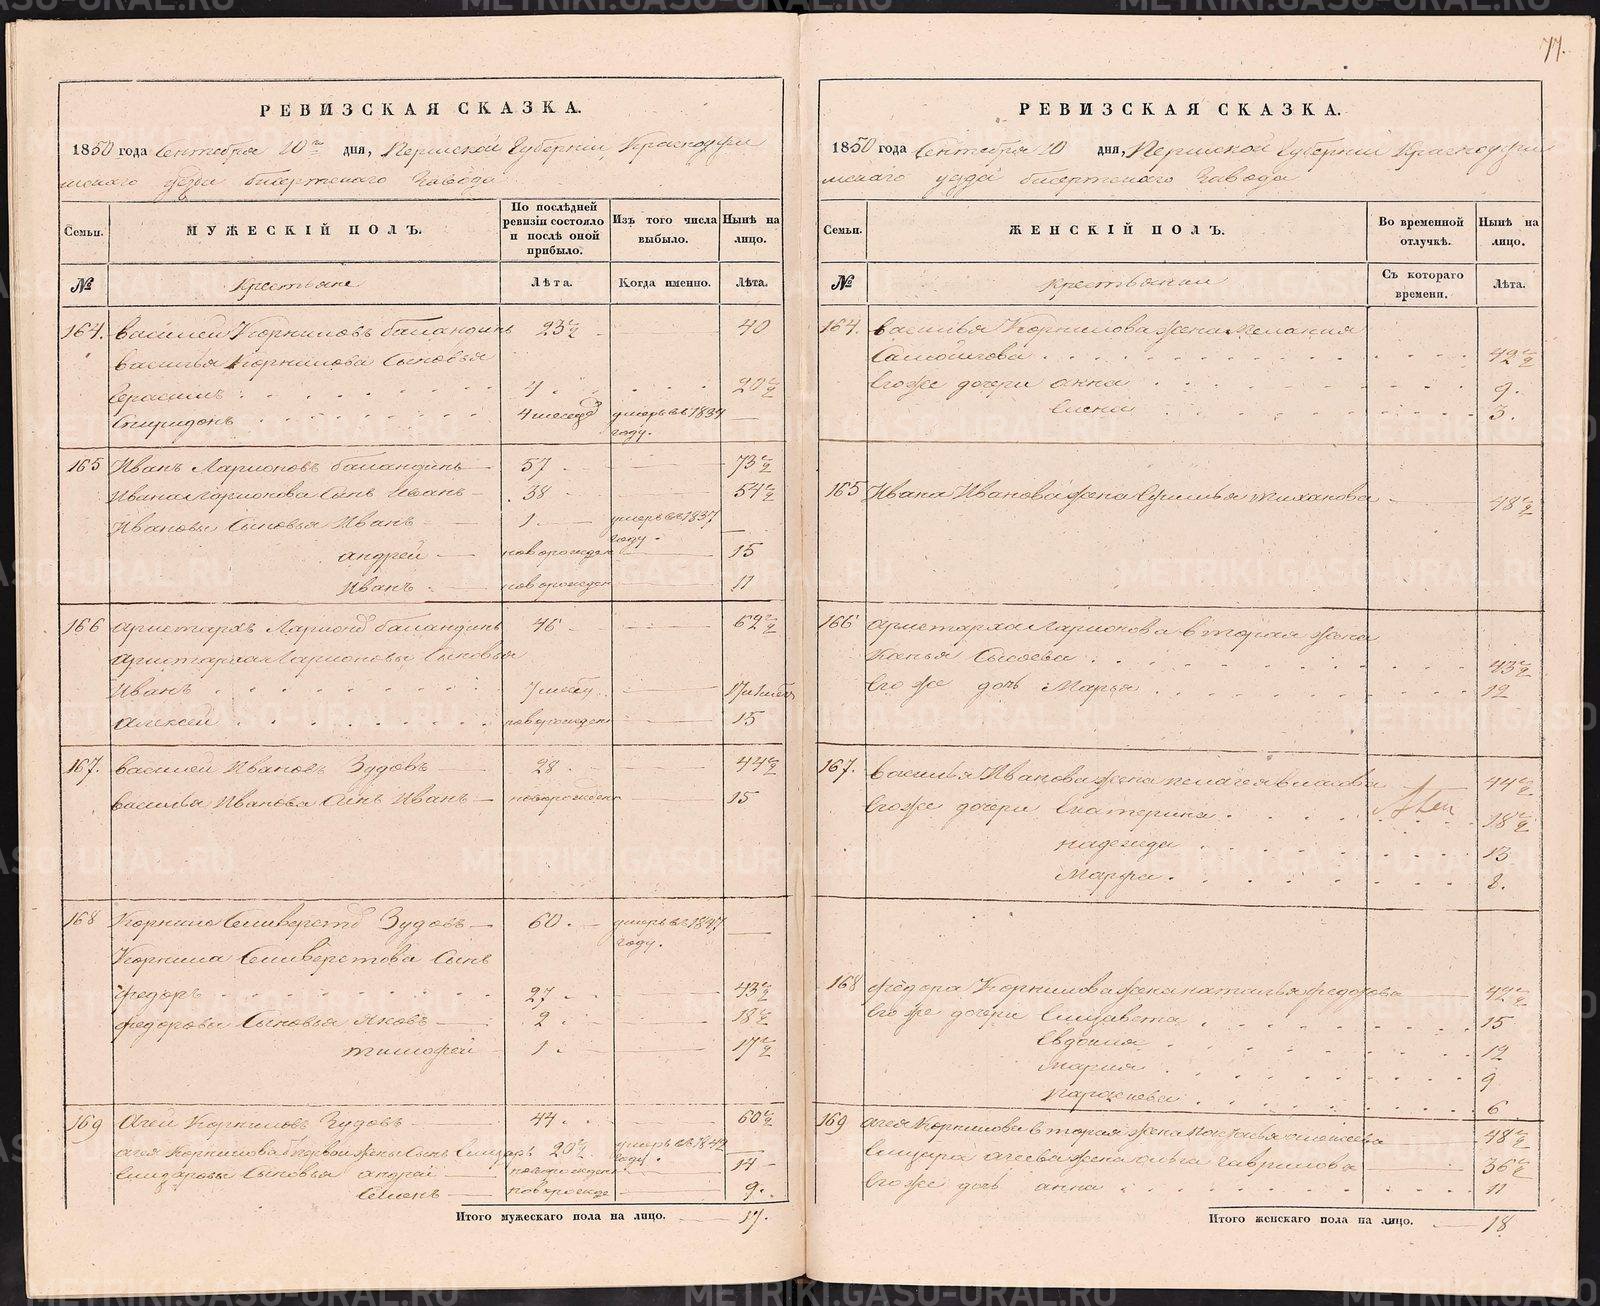 77.
РЕВИЗСКАЯ СКАЗКА.
1850 года Сентября 10го дня, Пермской Губернии Красноуфи
мского уезда бисертского завода
Семьи.
МУЖЕСКІЙ ПОЛЪ.
По послѣдней ревизіи состояло и послѣ оной прибыло.
Изъ того числа выбыло.
Нынѣ на лицо.
№ Крестьяне Лѣта. Когда именно. Лѣта.
164. василей Корниловъ баландинъ 23 1/2 40
василья Корнилова Сыновья
Герасимъ 4 20 1/2
Спиридонъ 4 месяц умерь въ 1837
году.
165 Иванъ Ларионовъ баландинъ 57 73 1/2
Ивана Ларионова Сынъ Иванъ 38 54 1/2
Ивановы Сыновья Иванъ 1 умерь въ 1837
году.
андрей новорожден 15
Иванъ новорожден 11
166 аристархъ Ларионо баландинъ 46 62 1/2
аристарха Ларионовы Сыновья
Иванъ 7 17
алексей новорожден 15
167. василей Ивановъ Зудовъ 28 44 1/2
василья Иванова Сынъ Иванъ новорожден 15
168 Корнило Селиверсто Зудовъ 60 умерь въ 1847
году.
Корнила Селиверстова Сынъ
Федоръ 27 43 1/2
Федоровы Сыновья Яковъ 2 18 1/2
тимофей 1 17 1/2
169 Агей Корниловъ Зудовъ 44 60 1/2
агея Корнилова первой жены Сынъ Елизаръ 20 1/2 умерь въ 1842
году.
Елизаровы Сыновья андрей новорожден 14
Семенъ новорожде 9.
Итого мужескаго пола на лицо. 17.
РЕВИЗСКАЯ СКАЗКА.
1850 года Сентября 10 дня, Пермской Губернии Красноуфи
мского уезда бисертского завода
Семьи.
ЖЕНСКІЙ ПОЛЪ.
Во временной отлучкѣ.
Нынѣ на лицо.
№ крестьянки Съ котораго времени. Лѣта.
164. василья Корнилова жена мелания
Самойлова 42 1/2
Его же дочери анна 9.
3.
165 Ивана Иванова жена 48 1/2
166 аристарха Ларионова вторая жена
Сысоева 43 1/2
Его же дочь Марья 12
167. василья Иванова жена пелагея власова 44 1/2
Его же дочери Екатерина 18 1/2
надежда 13
Марфа 8.
168 федора Корнилова жена наталья федотова 42 1/2
Его же дочери Елизавета 15
Евдокия 12
Мария 9
парасковья 6
169 агея Корнилова вторая жена алексеева 48 1/2
Елизара агеева жена ольга гаврилова 36 1/2
Его же дочь анна 11
Итого женскаго пола на лицо. 18
METRIKI.GASO-URAL.RU